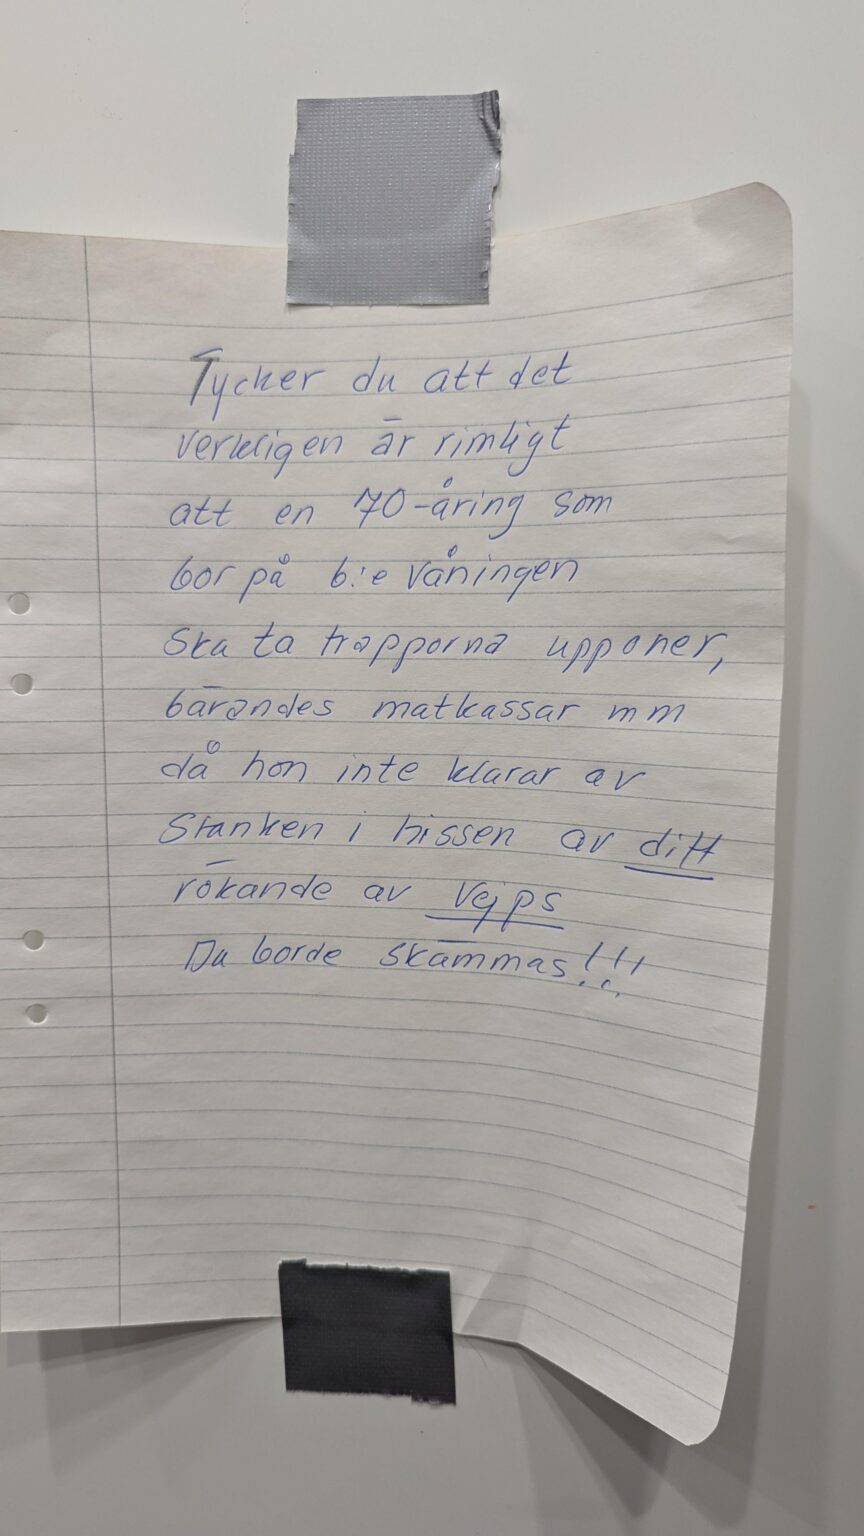 Tycker du att det
verkligen är rimligt
att en 70-åring som
bor på 6:e våningen
ska ta trapporna uppåner,
bärandes matkassar mm
då hon inte klarar av
stanken i hissen av ditt
rökande av vejps
Du borde skämmas!!!